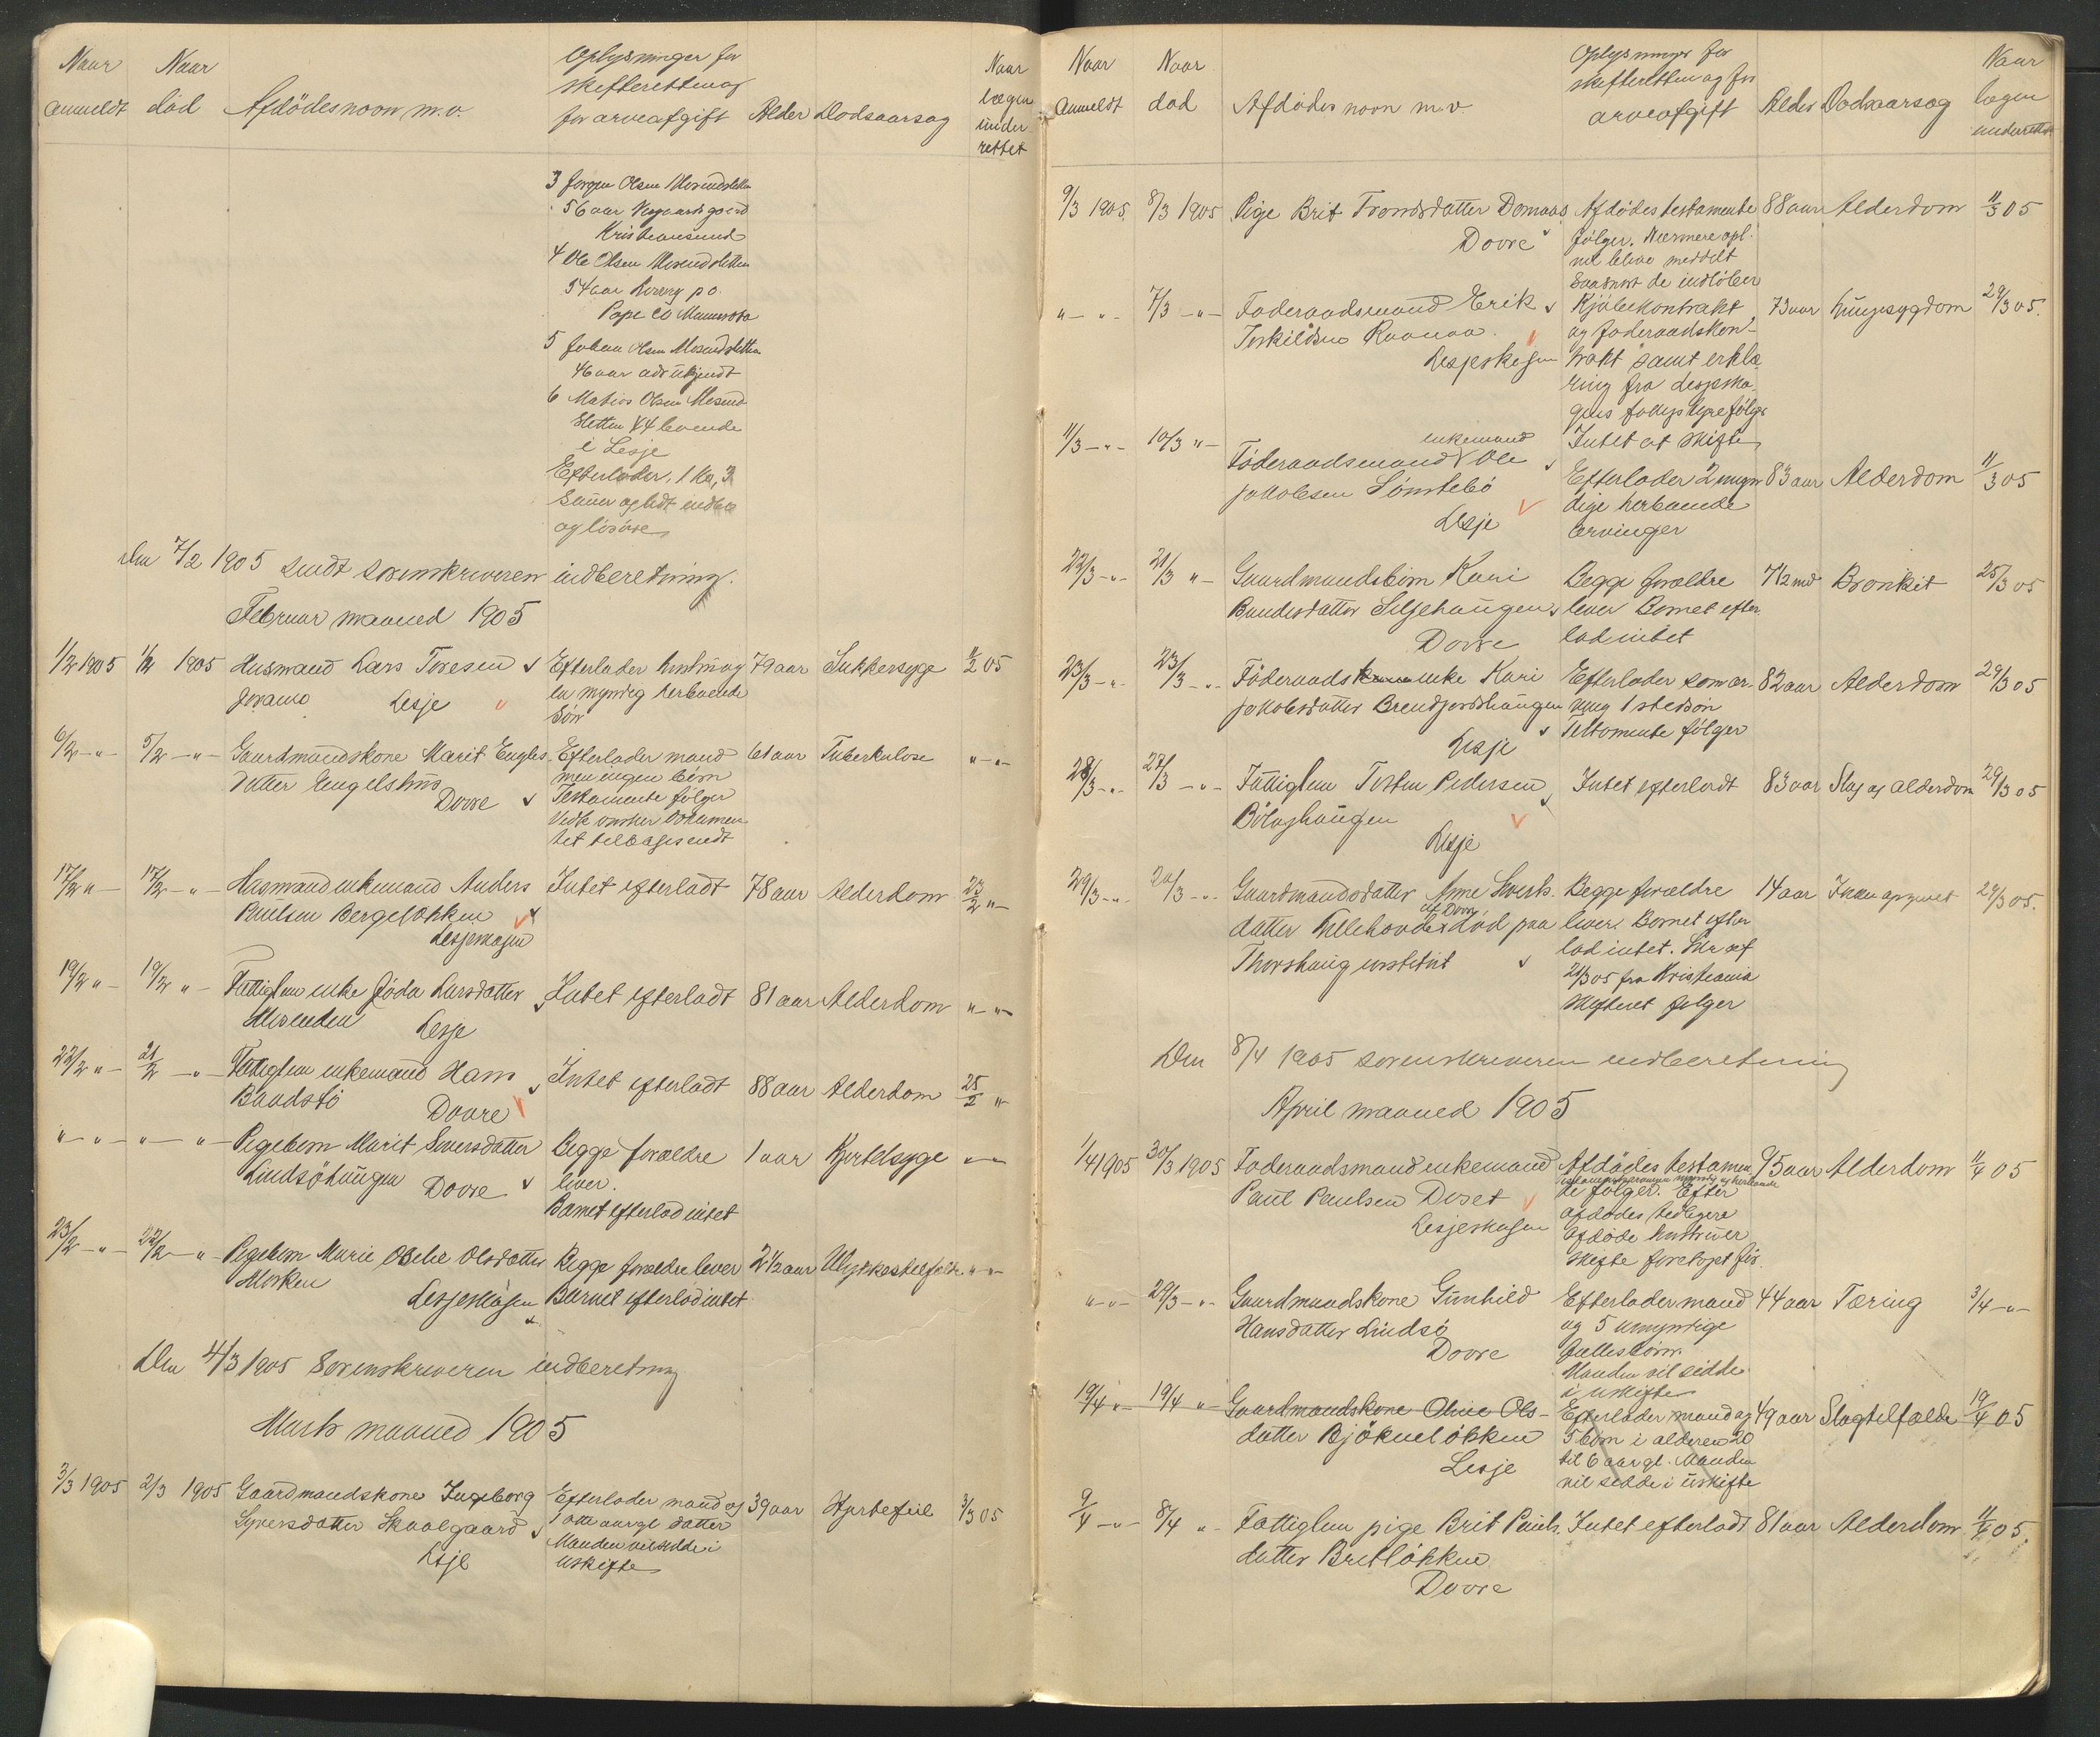 Naar anmeldt
Naar död
Afdödes navn m.v.
Oplysninger for skifteretten og for arveafgift
Alder
Dødsaarsag
Naar lægen underrettet
3 Jørgen Olsen
56 aar
Kristiansund
4 Ole Olsen
54 aar
Pope Co Minnesota
5 Johan Olsen
46 aar adr ukjendt
6 Matias Olsen
44 boende
i Lesje
Efterlader, 1 ko, 3
sauer og lidt indbo
og løsøre
Den 7/2 1905 sendt sorenskriveren indberetning.
Februar maaned 1905
1/2 1905 1905 Husmand Lars Toresen Efterlader hustru og 79 aar Sukkersyge 11/2 05
Joramo Lesje en myndig herboende
Søn
6/2 -"- 5/2 -"- Gaardmandskone Marit Engebs- Efterlader mand 61 aar Tuberkulose "-"-
datter Engelshus men ingen börn
Dovre Testamente følger
Vedk ønsker Dokumen
tet tilbagesendt
17/2 "- 17/2 -"- Husmand enkemand Anders Intet efterladt 78 aar Alderdom 23/2 "-
Paulsen Bergeløkken
Lesjeskogen
19/2 "- 19/2 "- Fattiglem enke Jöda Larsdatter Intet efterladt 81 aar Alderdom "-"-
Lesje
22/2 "- 21/2 -"- Fattiglem enkemand Hans Intet efterladt 88 aar Alderdom 25/2 "
Baadstö
Dovre
"-"- "- "- Pigebørn Marit Seversdatter Begge forældre 1 aar Kjertelsyge "-
Lindsöhaugen Dovre lever.
Barnet efterlod intet
23/2 -"- 22/2 -"- Pigebarn Marie Olsdatter Begge forældre lever 2 1/2 aar Ulykkestilfælde "-"-
Morken
Lesjeskogen Barnet efterlod intet
Den 4/3 1905 Sorenskriveren indberetning
Marts maaned 1905
3/3 1905 2/3 1905 Gaardmandskone Ingeborg Efterlader mand og 39 aar Hjertefeil 3/3 05
Syversdatter Skaalgaard 1 otte aar gl datter
Lesje Manden vil sidde i
uskifte
Naar anmeldt
Naar död
Afdödes navn m.v.
Oplysninger for skifteretten og for arveafgift
Alder
Dødsaarsag
Naar lægen underrettet
9/3 1905. 8/3 1905 Pige Brit Trondsdatter Domaas Afdödes testamente 88 aar Alderdom 11/3 05
Dovre følger. Nærmere opl.
vil blive meddelt
saasnart de indløber
"- "- 7/3 -"- Föderaadsmand Erik Kjøbekontrakt 73 aar Lungesygdom 29/3 05.
Torkildsen Raanaa. og føderaadskon-
Lesjeskogen trakt samt erklæ
ring fra Lesjesko
gens følger
11/3 -"- 10/3 "- enkemand Intet at skifte
Föderaadsmand Ole Efterlader 2 myn 83 aar Alderdom 11/3 05
Jakobsen Sønstebö dige herboende
Lesje arvinger
22/3 -"- 21/3 "- Gaardmandsbörn Kari Begge forældre 7 1/2 md Bronkit 25/3 05
datter Seljehaugen lever Barnet efter
Dovre lod intet
23/3 -"- 23/3 -"- Föderaads enke Kari Efterlader som ar- 82 aar Alderdom 29/3 05
Jakobsdatter Brendjordshaugen ving 1 stedsøn
Lesje Testamente følger
28/3 -"- 27/3 -"- Fattiglem Torsten Pedersen Intet efterladt 83 aar Slag og alderdom 29/3 05
Bölaghaugen
Lesje
29/3 -"- 20/3 -"- Gaardmandsdatter Anne Begge forældre 14 aar Ikke opgivet 29/3 05.
af Dovre
datter død paa lever. Barnet efter
Thorshaug institut lod intet. Skr af
21/3 05 fra Kristiania
skifteret følger
Den 8/4 1905 sorenskriveren indberetning
April maaned 1905
1/4 1905 30/3 1905 Föderaadsmand enkemand Afdödes testamen 95 aar Alderdom 11/4 05
Paul Paulsen Doset te følger. Efter
Lesjeskogen afdødes tidligere
afdøde hustruer
skifte foretaget før.
"-"- 29/3 -"- Gaardmandskone Gunhild Efterlader mand 44 aar Tæring 3/4 -"-
Hansdatter Lindsö og 5 umyndige
Dovre fællesbørn.
Manden vil sidde
i uskifte
19/4 "- 19/4 "- Gaardmandskone Oline Ols- Efterlader mand og 49 aar Slagtilfælde 19/4 05
datter Bjökneløkken 5 børn i alderen 20
Lesje til 6 aar gl. Manden
vil sidde i uskifte
9/4 -"- 8/4 "- Fattiglem pige Brit Pauls- Intet efterladt 81 aar Alderdom 11/4 05
datter Britløkken
Dovre